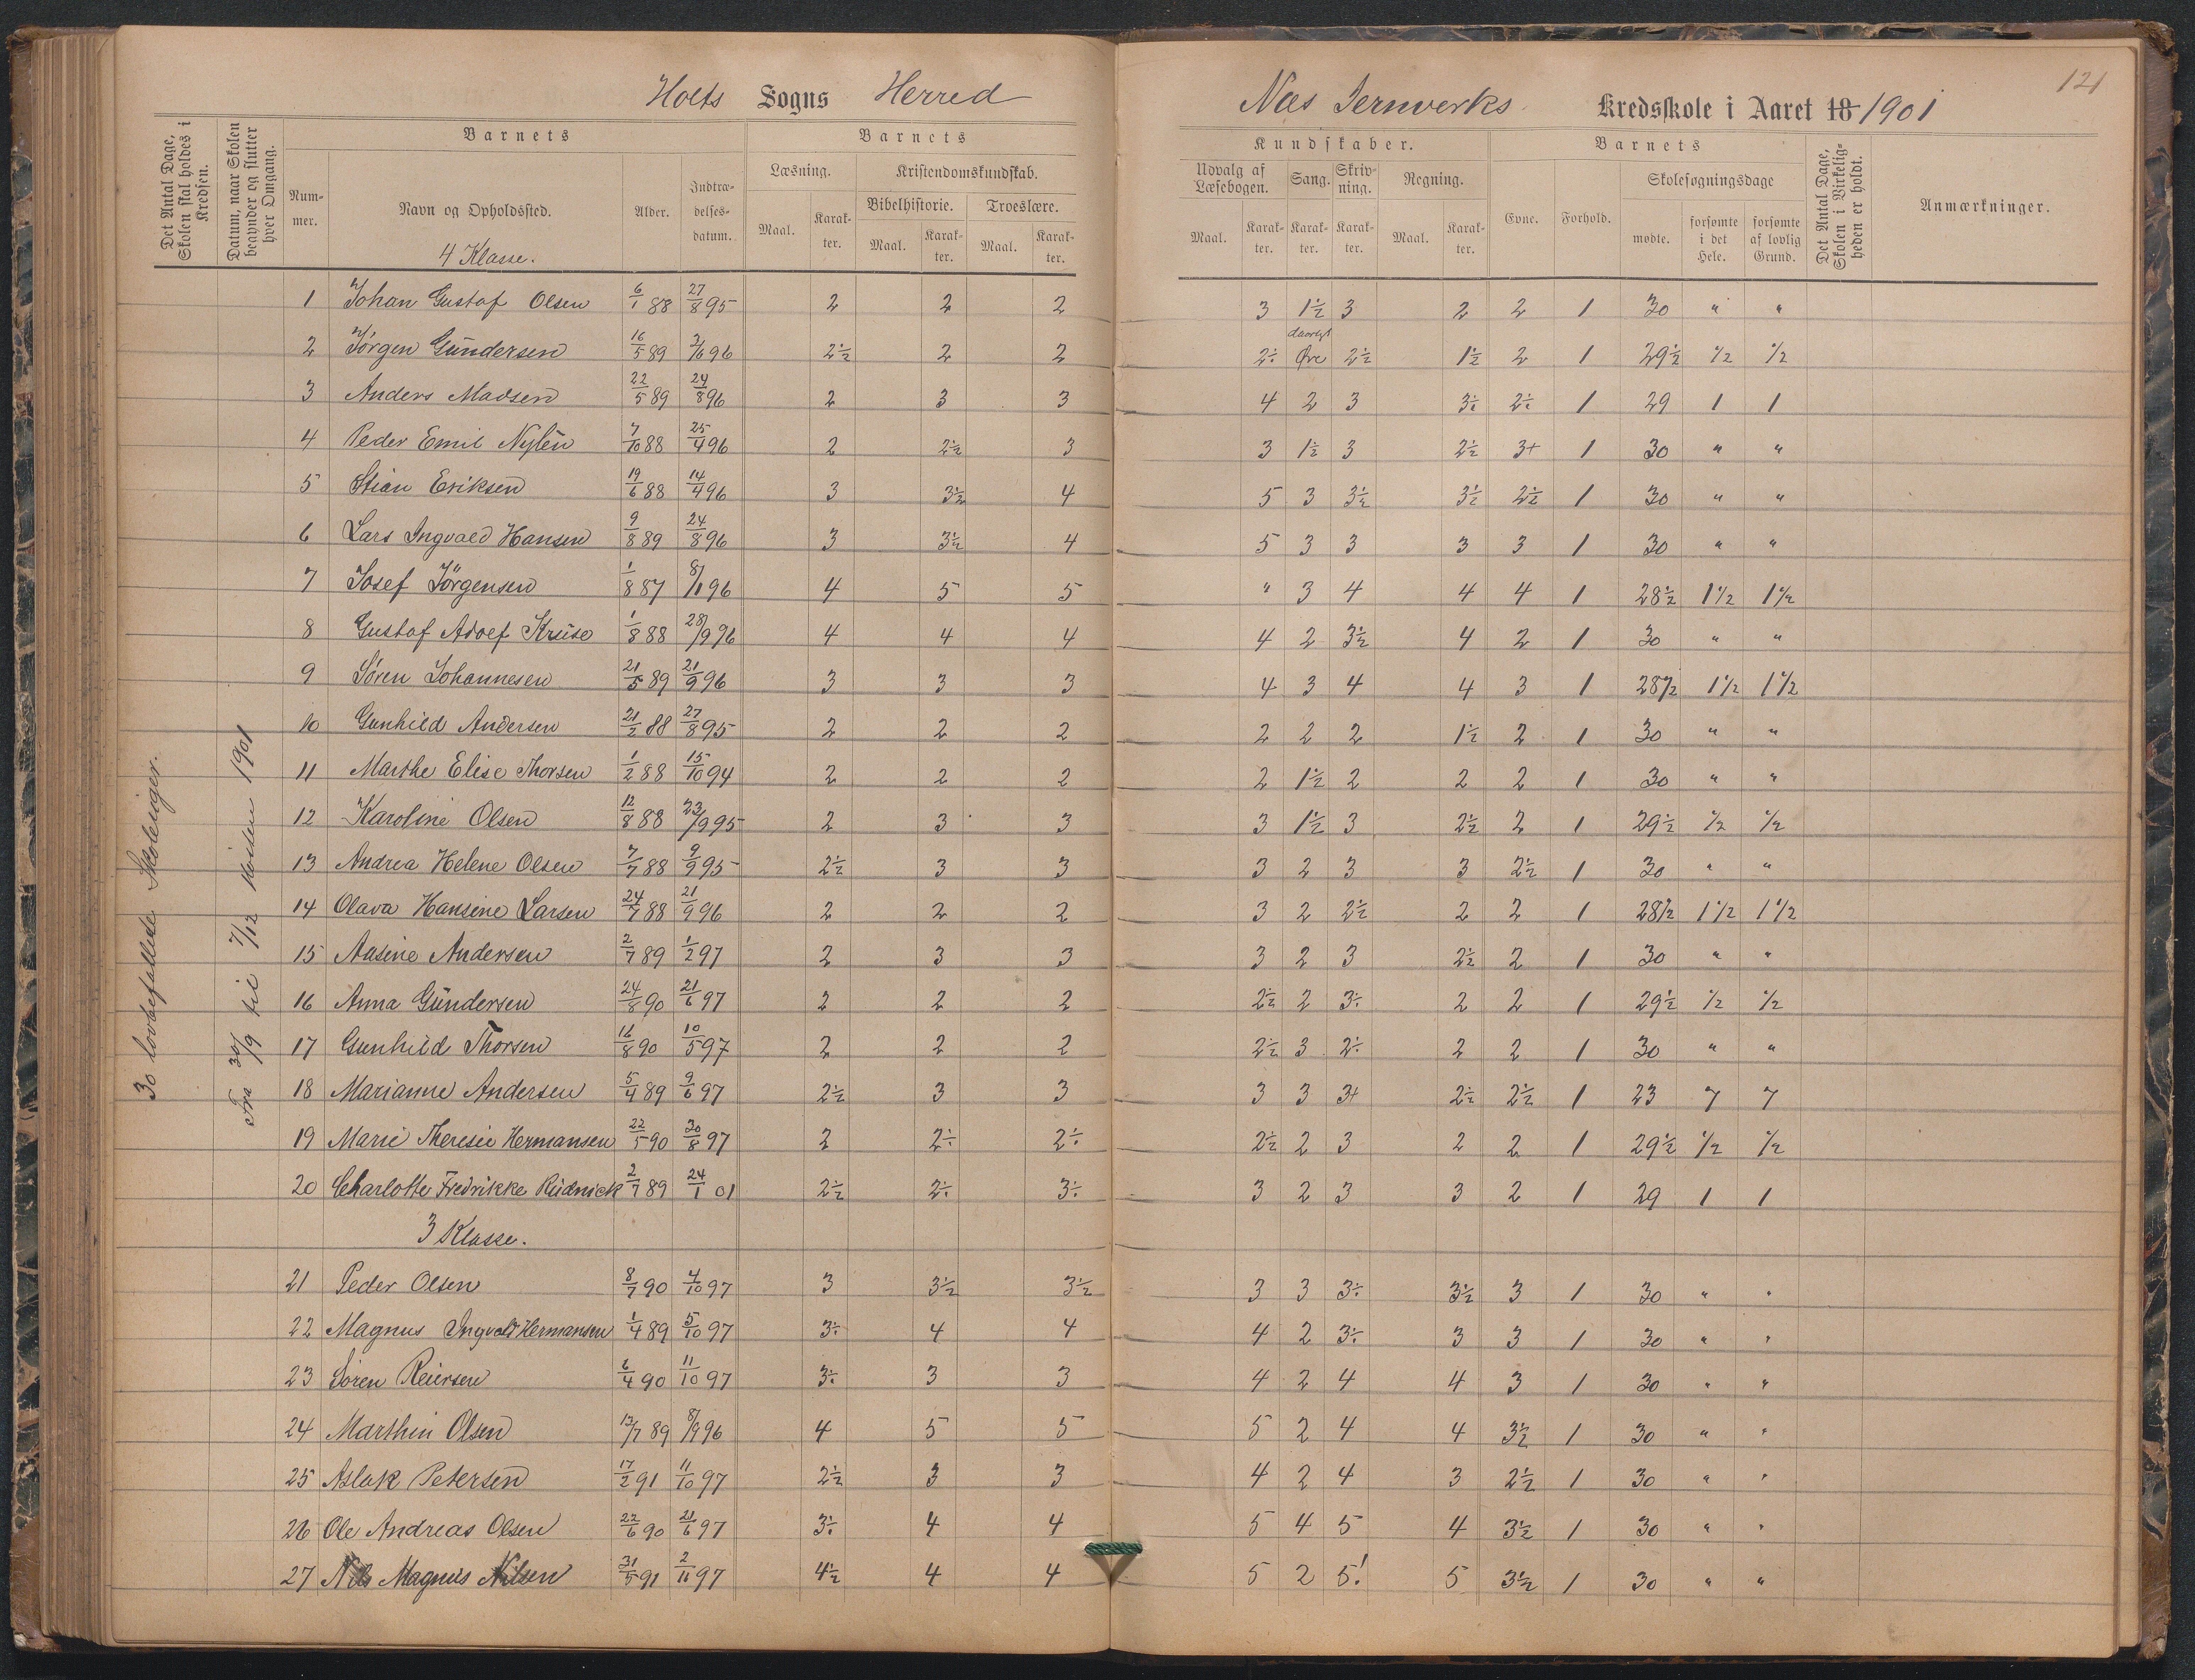 121
Holts Sogns Herred
Næs Jernverks Kredsskole i Aaret 18 1901
Det Antal Dage, Skolen skal holdes i Kredsen.
Datum, naar Skolen begynder og slutter hver Omgang.
Barnets
Nummer.
Navn og Opholdssted.
Alder.
Indtrædelsesdatum.
Barnets
Læsning.
Maal.
Karakter.
Kristendomskundskab.
Bibelhistorie.
Maal.
Karakter.
Troeslære.
Maal.
Karakter.
Kundskaber.
Udvalg af Læsebogen.
Maal.
Karakter.
Sang.
Karakter.
Skrivning.
Karakter.
Regning.
Maal.
Karakter.
Barnets
Evne.
Forhold.
Skolesøgningsdage
mødte.
forsømte i det Hele.
forsømte af lovlig Grund.
Det Antal Dage, Skolen i Virkeligheden er holdt.
Anmærkninger.
30 lovbefallede Skoleuger.
Fra 30/9 til 7/12 1901
4 Klasse.
1 Johan Gustaf Olsen 6/1 88 27/8 95 2 2 2 3 1½ 3 2 2 1 30 " "
2 Jörgen Gundersen 16/5 89 3/6 96 2½ 2 2 2÷ daarligt Øre 2½ 1½ 2 1 29½ ½ ½
3 Anders Madsen 22/5 89 24/8 96 2 3 3 4 2 3 3÷ 2÷ 1 29 1 1
4 Peder Emil Nylén 7/10 88 25/4 96 2 2½ 3 3 1½ 3 2½ 3+ 1 30 " "
5 Stian Eriksen 19/6 88 14/4 96 3 3½ 4 5 3 3½ 3½ 2½ 1 30 " "
6 Lars Ingvald Hansen 9/8 89 24/8 96 3 3½ 4 5 3 3 3 3 1 30 " "
7 Josef Jörgensen 1/8 87 8/1 96 4 5 5 " 3 4 4 4 1 28½ 1½ 1½
8 Gustaf Adolf Kruse 1/8 88 28/9 96 4 4 4 4 2 3½ 4 2 1 30 " "
9 Sören Johannesen 21/5 89 21/9 96 3 3 3 4 3 4 4 3 1 28½ 1½ 1½
10 Gunhild Andersen 21/2 88 27/8 95 2 2 2 2 2 2 1½ 2 1 30 " "
11 Marthe Elise Thorsen 1/2 88 15/10 94 2 2 2 2 1½ 2 2 2 1 30 " "
12 Karoline Olsen 12/8 88 23/9 95 2 3 3 3 1½ 3 2½ 2 1 29½ ½ ½
13 Andrea Helene Olsen 7/7 88 9/9 95 2½ 3 3 3 2 3 3 2½ 1 30 " "
14 Olava Hansine Larsen 24/7 88 21/9 96 2 2 2 3 2 2½ 2 2 1 28½ 1½ 1½
15 Aasine Andersen 2/7 89 1/2 97 2 3 3 3 2 3 2½ 2 1 30 " "
16 Anna Gundersen 24/8 90 21/6 97 2 2 2 2½ 2 3÷ 2 2 1 29½ ½ ½
17 Gunhild Thorsen 16/8 90 10/5 97 2 2 2 2½ 3 2÷ 2 2 1 30 " "
18 Marianne Andersen 5/4 89 9/6 97 2½ 3 3 3 3 3+ 2½ 2½ 1 23 7 7
19 Marie Theresie Hermansen 22/5 90 30/8 97 2 2÷ 2÷ 2½ 2 3 2 2 1 29½ ½ ½
20 Charlotte Fredrikke Rudnick 2/7 89 24/1 01 2½ 2÷ 3÷ 3 2 3 3 2 1 29 1 1
3 Klasse.
21 Peder Olsen 8/7 90 4/10 97 3 3½ 3½ 3 3 3÷ 3½ 3 1 30 " "
22 Magnus Ingvald Hermansen 1/4 89 5/10 97 3÷ 4 4 4 2 3÷ 3 3 1 30 " "
23 Sören Reiersen 6/4 90 11/10 97 3÷ 3 3 4 2 4 4 3 1 30 " "
24 Marthin Olsen 13/7 89 8/9 96 4 5 5 5 2 4 4 3½ 1 30 " "
25 Aslak Petersen 17/2 91 11/10 97 2½ 3 3 4 2 4 3 2½ 1 30 " "
26 Ole Andreas Olsen 22/6 90 21/6 97 3÷ 4 4 5 4 5 4 3½ 1 30 " "
27 Nils Magnus Nilsen 31/5 91 2/11 97 4½ 4 4 5 2 5! 5 3½ 1 30 " "